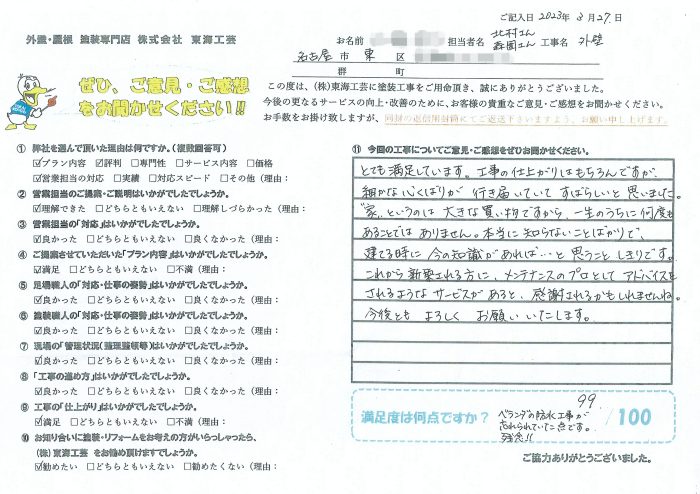 ご記入日 2023年 3月27日
外壁・屋根 塗装専門店 株式会社 東海工芸
お名前 担当者名 北村さん 森園さん 工事名 外壁
名古屋市 東 区
郡 町
ぜひ、ご意見・ご感想
をお聞かせください!!
この度は、(株)東海工芸に塗装工事をご用命頂き、誠にありがとうございました。
今後の更なるサービスの向上・改善のために、お客様の貴重なご意見・ご感想をお聞かせください。
お手数をお掛け致しますが、同封の返信用封筒にてご返送下さいますよう、お願い申し上げます。
① 弊社を選んで頂いた理由は何ですか。(複数回答可)
☑プラン内容 ☑評判 □専門性 □サービス内容 □価格
☑営業担当の対応 □実績 □対応スピード □その他(理由:
② 営業担当のご提案・ご説明はいかがでしたでしょうか。
☑理解できた □どちらともいえない □理解しづらかった(理由:
③ 営業担当の「対応」はいかがでしたでしょうか。
☑良かった □どちらともいえない □良くなかった(理由:
④ ご提案させていただいた「プラン内容」はいかがでしたでしょうか。
☑満足 □どちらともいえない □不満(理由:
⑤ 足場職人の「対応・仕事の姿勢」はいかがでしたでしょうか。
☑良かった □どちらともいえない □良くなかった(理由:
⑥ 塗装職人の「対応・仕事の姿勢」はいかがでしたでしょうか。
☑良かった □どちらともいえない □良くなかった(理由:
⑦ 現場の「管理状況(整理整頓等)はいかがでしたでしょうか。
☑良かった □どちらともいえない □良くなかった(理由:
⑧ 「工事の進め方」はいかがでしたでしょうか。
☑良かった □どちらともいえない □良くなかった(理由:
⑨ 工事の「仕上がり」はいかがでしたでしょうか。
☑満足 □どちらともいえない □不満(理由:
⑩ お知り合いに塗装・リフォームをお考えの方がいらっしゃったら、
(株)東海工芸 をお勧め頂けますでしょうか。
☑勧めたい □どちらともいえない □勧めたくない(理由:
⑪ 今回の工事についてご意見・ご感想をぜひお聞かせください。
とても満足しています。工事の仕上がりはもちろんですが、
細かな心くばりが 行き届いていて すばらしいと思いました。
"家"というのは 大きな買い物ですから、一生のうちに何度も
あることでは ありません。本当に知らないことばかりで、
建てる時に 今の知識があれば…と 思うこと しきりです。
これから新築される方に、メンテナンスのプロとして アドバイスを
されるような サービスがあると、感謝されるかもしれませんね。
今後とも よろしく お願いいたします。
満足度は何点ですか? 99/100
ベランダの防水工事が
忘れられていた1点です。
残念!!
ご協力ありがとうございました。